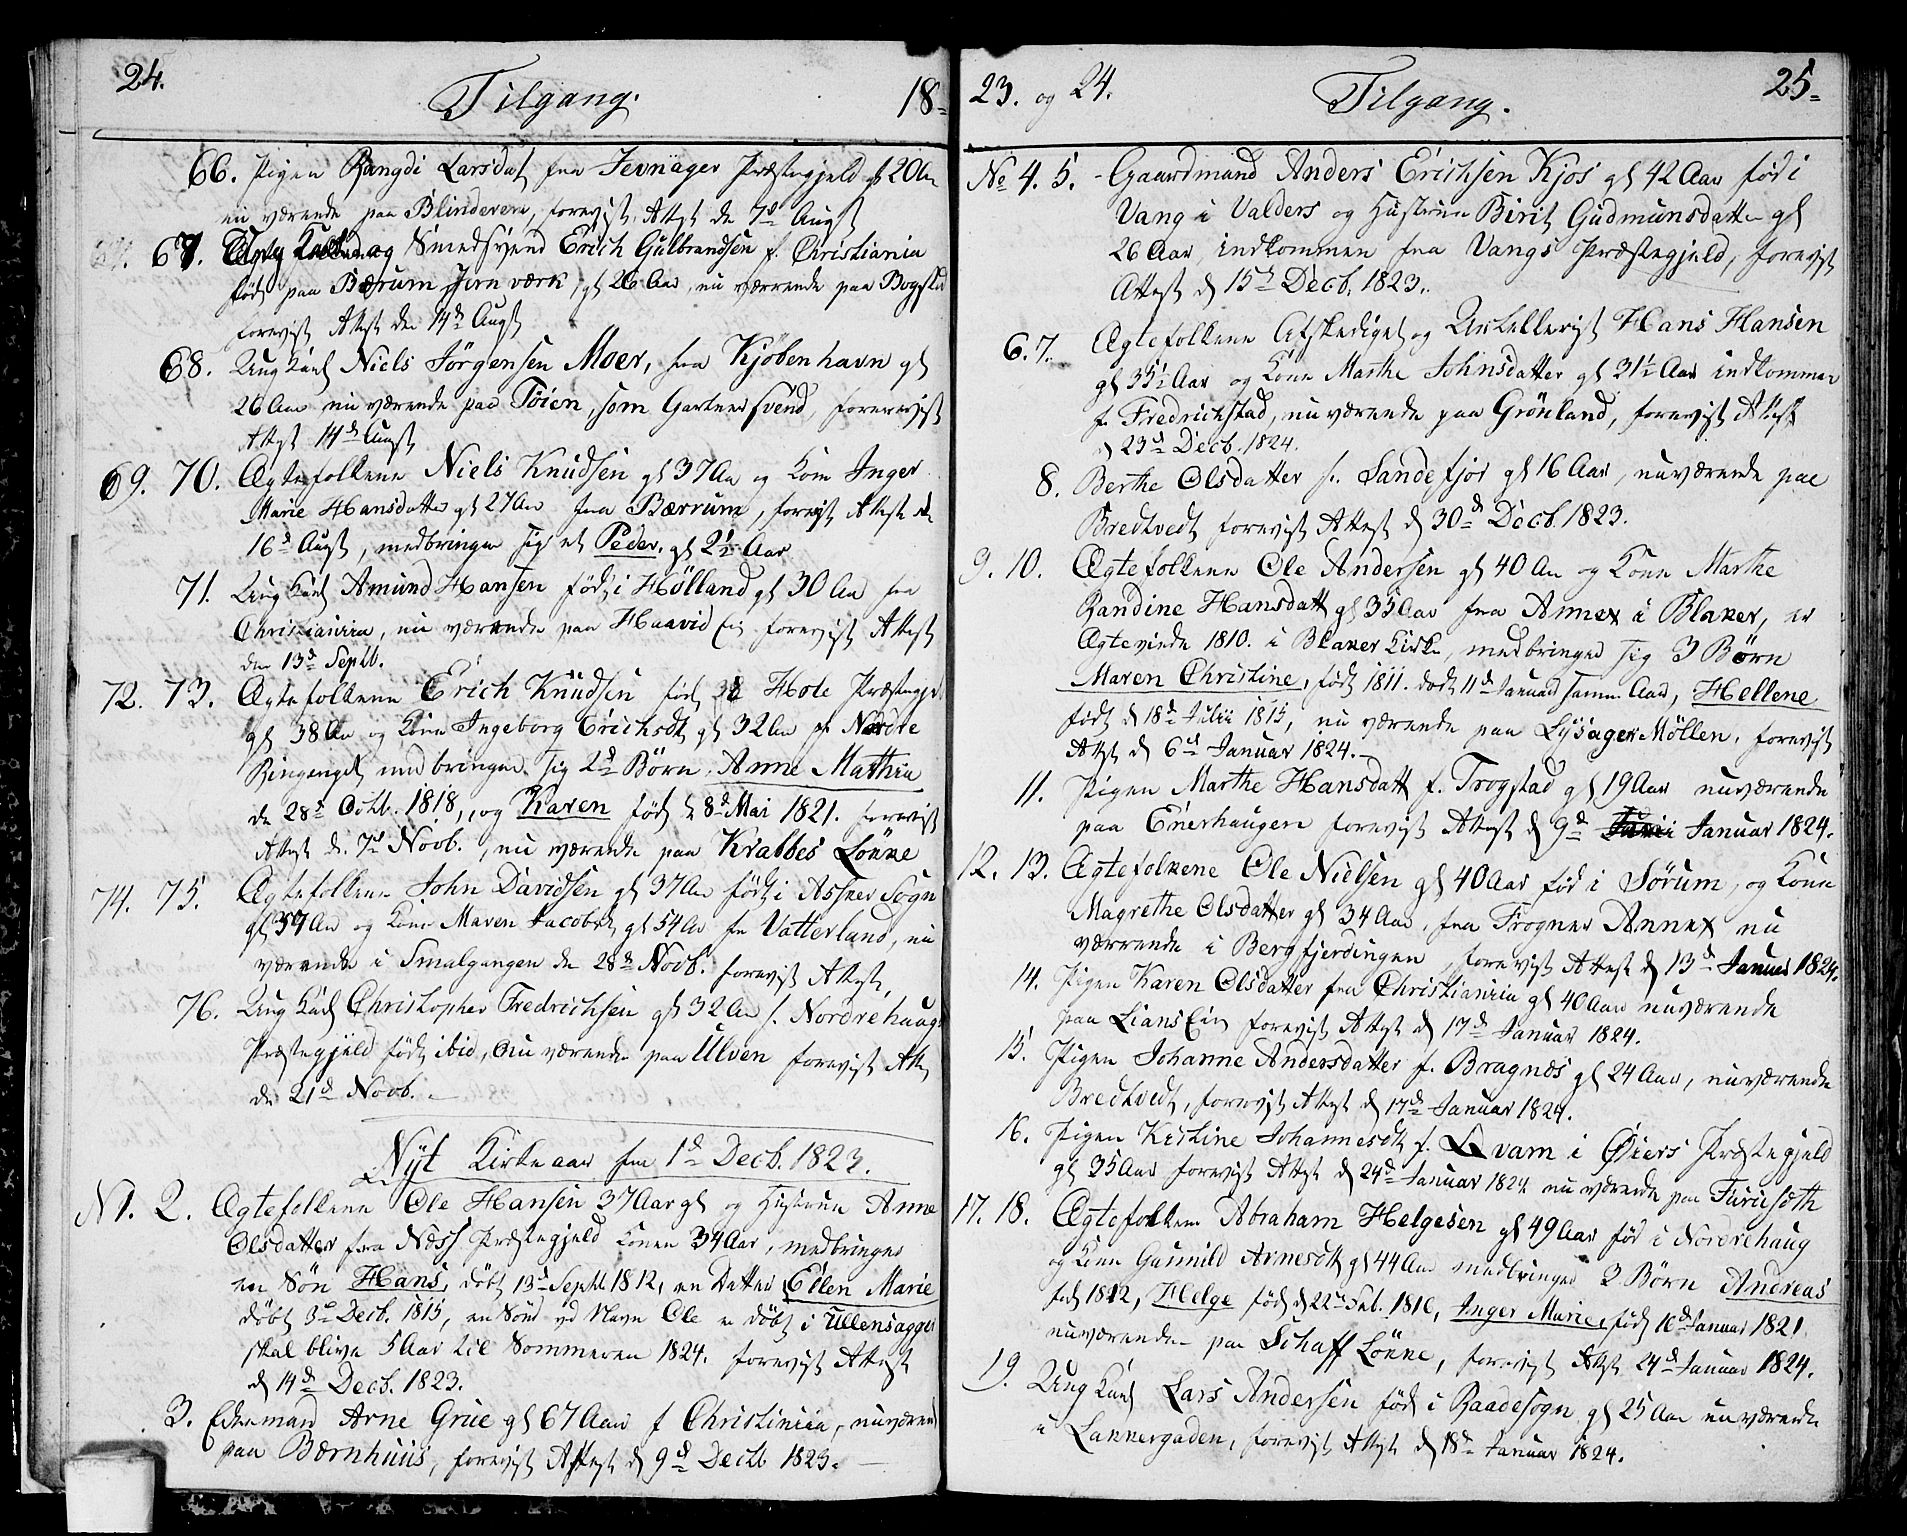 24.
Tilgang.
18-
66. Pigen Rangdi Larsdat fra Jevnager Præstegjeld gl 20 Aar
nu værende paa Blinderen, forevist Attest de 7d Augst
67. og Smedsvend Erich Gulbrandsen f. Christiania
født paa Bærum Jernværk, gl 26 Aar, nu værrende paa Bogstad
forevist Attest den 14d Augst
68. Ung Karl Niels Jörgensen Moer, fra Kjöbenhavn gl
26 Aar nu værende paa Töien, som Gartnersvend, forevist
Attest 14d Augst
69. 70. Ægtefolkene Niels Knudsen gl 37 Aar og Kone Inger
Marie Hansdatter gl 27 Aar fra Bærrum, forevist Attest de
16d Augst, medbringer sig et Peder, gl 2½ Aar
71. Ung Karl Amund Hansen født i Hölland gl 30 Aar fra
Christiania, nu værende paa Haavid Eie forevist Attest
den 13d Septb.
72. 73. Ægtefolkene Erich Knudsen født i Hole Præstegjd
gl 38 Aar og Kone Ingeborg Erichsdt gl 32 Aar f. Nordre
Ringeriget medbringer sig 2d Börn, Anne Mathia
de 28d Octb. 1818, og Karen født d 8d Mai 1821. forevist
Attest d. 7d Novb., nu værende paa Krabbes Lökke
74. 75. Ægtefolkene John Davidsen gl 37 Aar født i Asker Sogn
gl 37 Aar og Kone Maren Jacobsdt gl 54 Aar fra Vatterland, nu
værende i Smalgangen de 28d Novb. forevist Attest,
76. Ung Karl Christopher Fredrichsen gl 32 Aar f. Nordrehaugs
Præstegjeld født ibid, nu værende paa Ulven forevist Att
de 21d Novb.
Nÿt Kirkeaar fra 1d Decb. 1823.
N 1. 2. Ægtefolkene Ole Hansen 37 Aar gl og Hustrue Anne
Olsdatter fra Næss Præstegjeld Konen 34 Aar, medbringer
en Sön Hans, döbt 13d Septb 1812, en Datter Ellen Marie
döbt 3d Decb. 1815, en Sönd ved Navn Ole er döbt i Ullensagger
skal blive 5 Aar til Sommeren 1824. forevist Attest
d 14d Decb. 1823.
3. Arne Grue gl 67 Aar f Christiania, nuværend
paa Bærnhuus, forevist Attest d 9d Decbb 1823.
23. og 24.
Tilgang.
25-
No 4. 5. Gaardmand Anders Erichsen Kjos gl 42 Aar föd i
Vang i Valders og Hustrue Birit Gudmunsdatter gl
26 Aar, indkommen fra Vangs Præstegjeld, forevist
Attest d 15d Decb. 1823.
6. 7. Ægtefolkene Afskediget og Artellerist Hans Hansen
gl 35½ Aar og Kone Marthe Johnsdatter gl 31½ Aar indkommen
f. Fredrichstad, nuværende paa Grönland, forevist Attest
d 23d Decb. 1824.
8. Berthe Olsdatter f. Sandefjor gl 16 Aar, nuværende paa
Bredtvedt forevist Attest d 30d Decb. 1823.
9. 10. Ægtefolkene Ole Andersen gl 40 Aar og Kone Marthe
Randine Hansdatt gl 35 Aar fra Annex i Blaker, er
Ægteviede 1810. i Blaker Kirke, medbringer sig 3 Børn
Maren Christine, født 1811. døbt 11d Januar samme Aar, Hellene
født d 18d Julii 1815, nu værende paa Lysager Möllen, forevist
Attest d 6d Januar 1824.
11. Pigen Marthe Hansdatt f. Trogstad gl 19 Aar nuværende
paa Enerhaugen forevist Attest d 9d Januar 1824.
12. 13. Ægtefolkene Ole Nielsen gl 40 Aar föd i Sörum, og Kone
Magrethe Olsdatter gl 34 Aar, fra Frogner Annex nu
værrende i Bergfjerdingen, forevist Attest d 13d Januar 1824.
14. Pigen Karen Olsdatter fra Christiania gl 40 Aar nuværende
paa Lians Eie forevist Attest d 17d Januar 1824.
15. Pigen Johanne Andersdatter f. Bragnæs gl 24 Aar, nuværende
Bredtvedt, forevist Attest d 17d Januar 1824.
16. Pigen Kistine Johannesdt f. Qvam i Öiers Præstegjeld
gl 35 Aar forevist Attest d 24d Januar 1824 nu værende paa Furuseth
17. 18. Ægtefolkene Abraham Helgesen gl 49 Aar föd i Nordrehaug
og Kone Gunnild Arnesdt gl 44 Aar medbringer 3 Börn Andreas
föd 1812, Helge föd d 22d Feb. 1816, Inger Marie, född 16d Januar 1821
nuværende paa Schaff Lökke, forevist Attest 24d Januar 1824.
19. Ung Karl Lars Andersen född i Raadesogn gl 25 Aar nuværende
i Lakkergaden, forevist Attest d 18d Januar 1824.